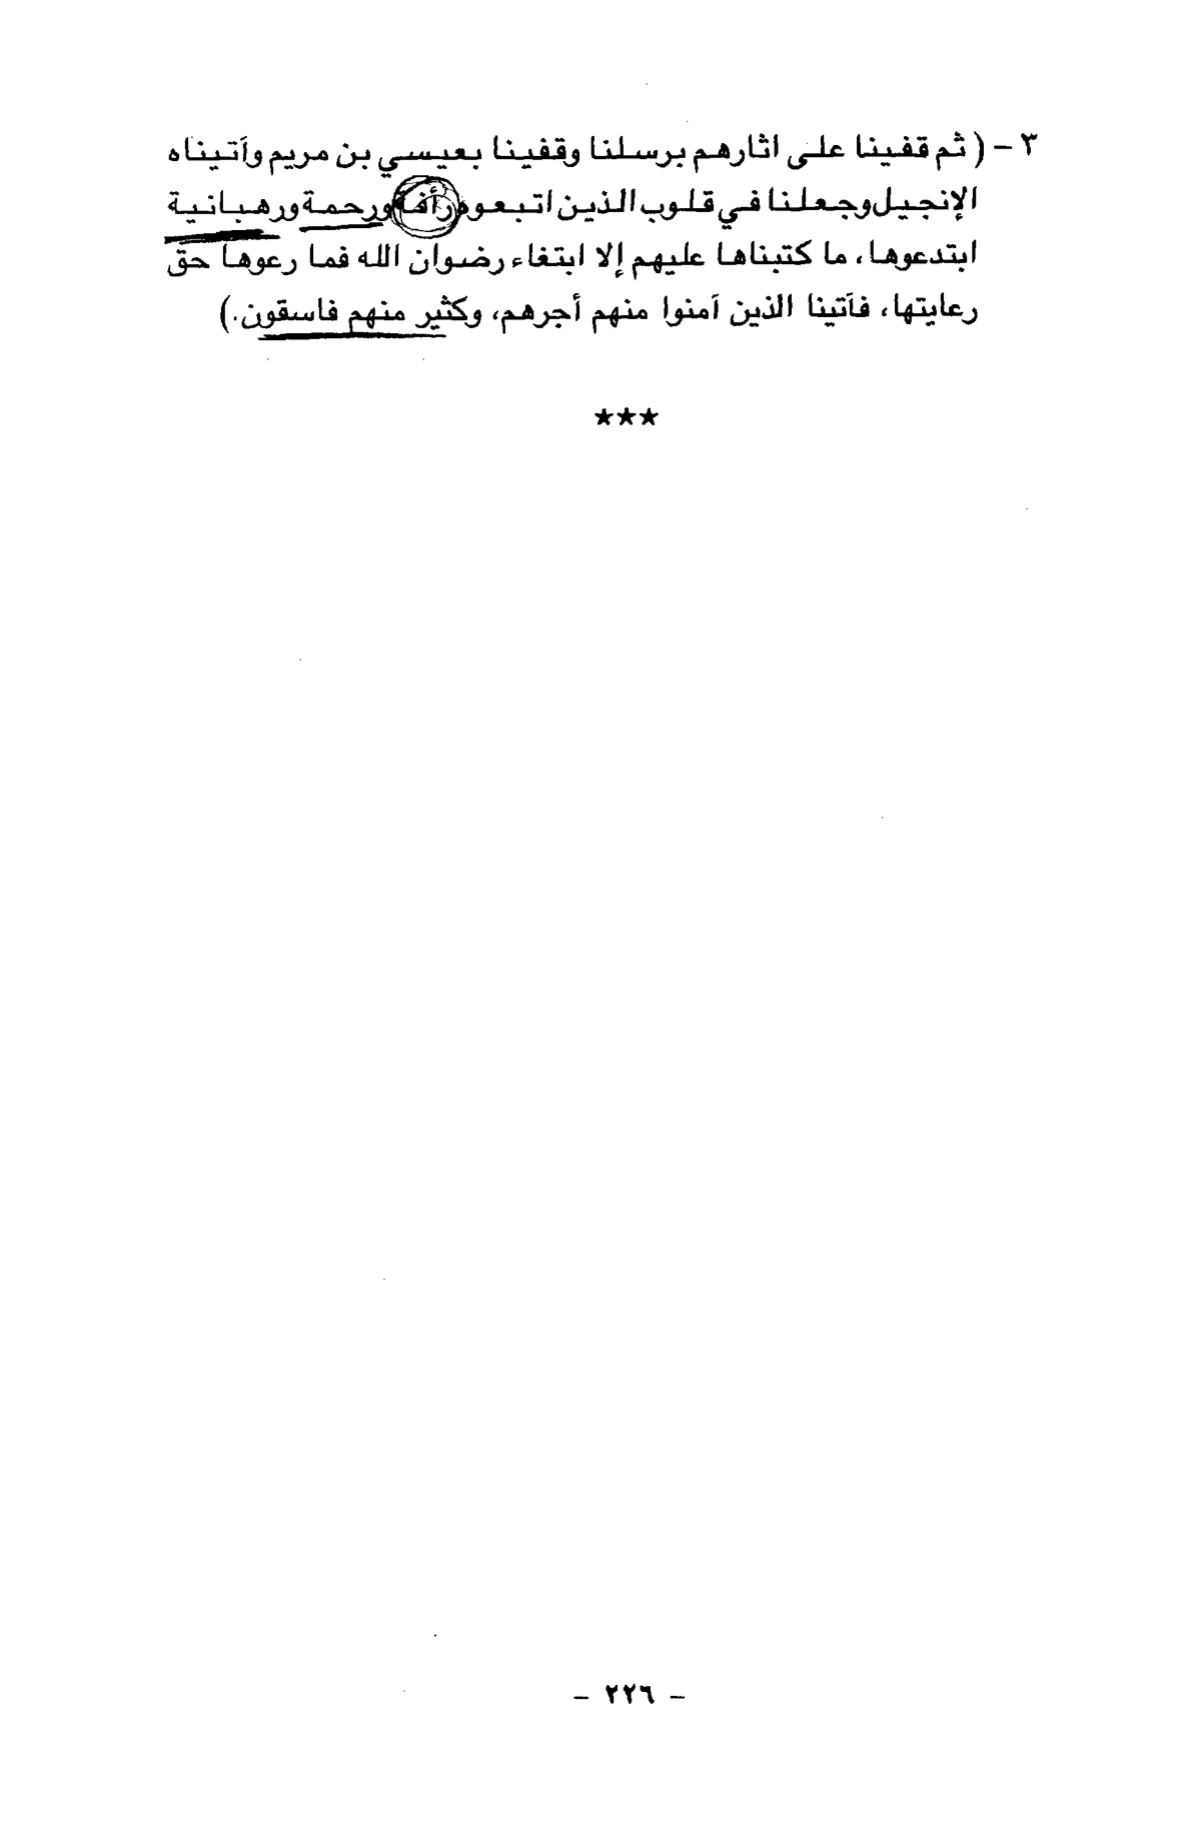 ٣ - ( ثم قفينا على اثارهم برسلنا وقفينا بعيسي بن مريم وآتيناه
الإنجيل وجعلنا في قلوب الذين اتبعوه رأفة ورحمة ورهبانية
ابتدعوها، ما كتبناها عليهم إلا ابتغاء رضوان الله فما رعوها حق
رعايتها، فآتينا الذين آمنوا منهم أجرهم، وكثير منهم فاسقون.)
***
- ٢٢٦ -